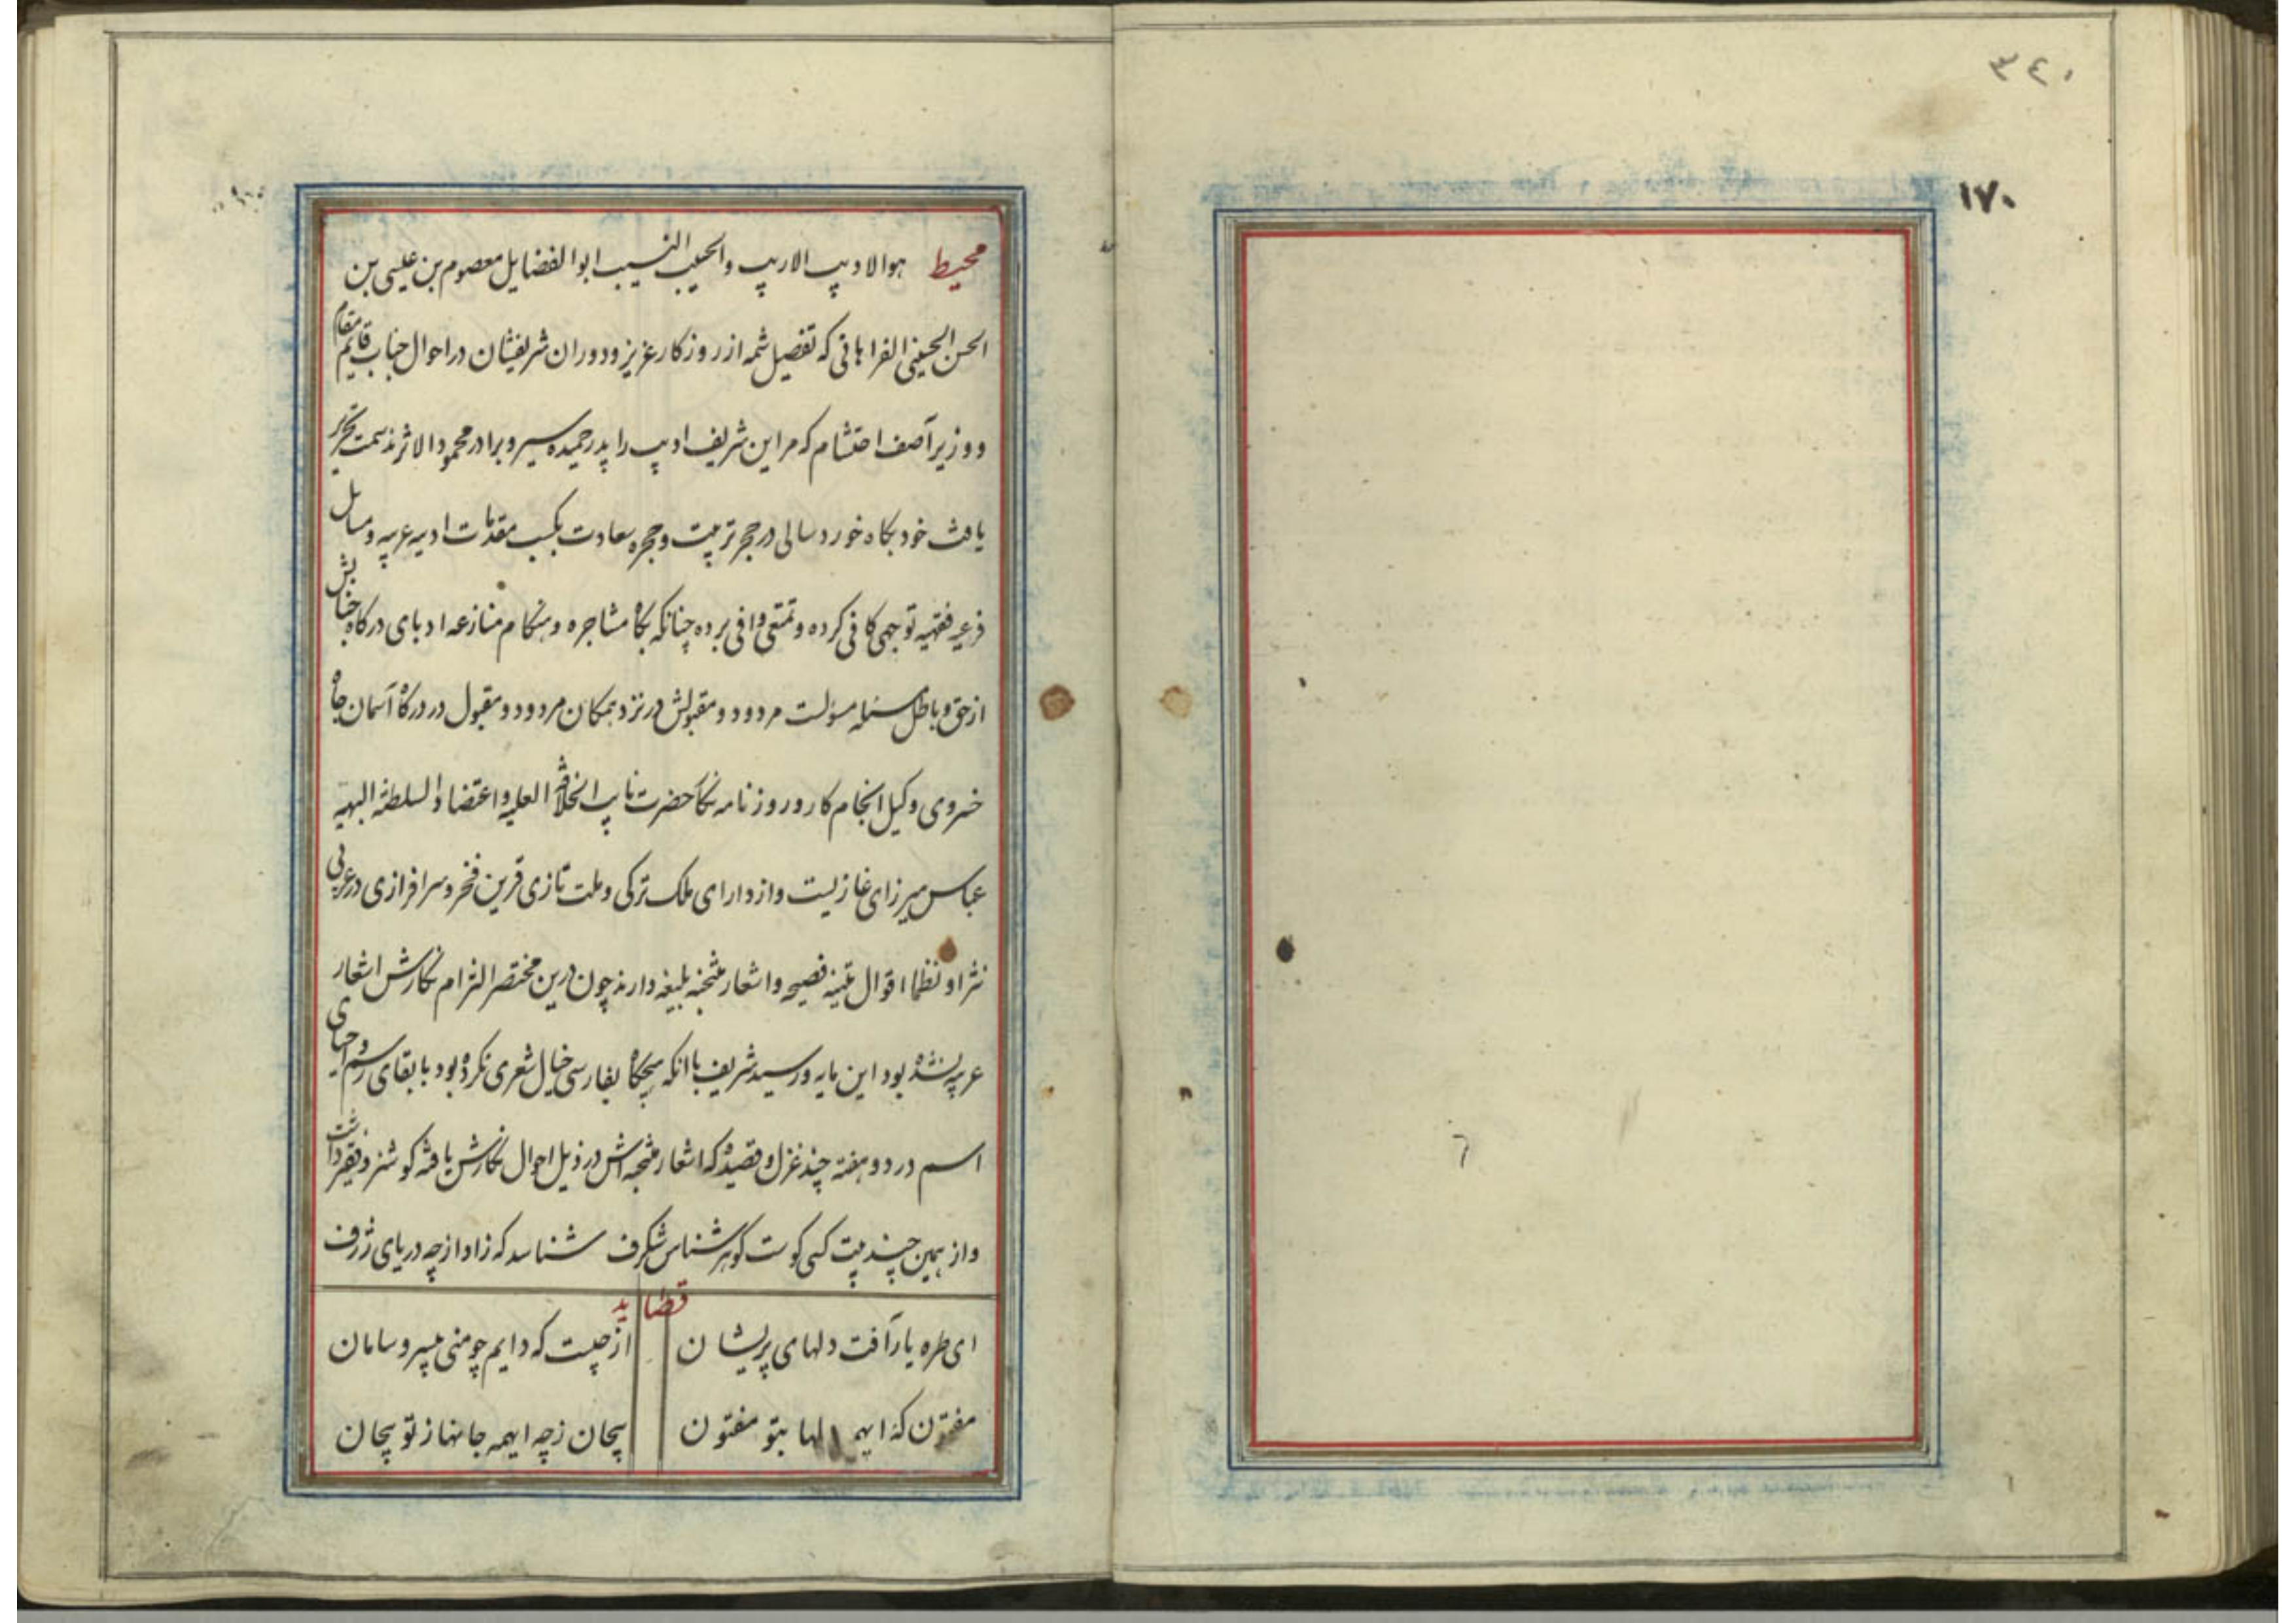 ٣٤٠
١٧٠
محیط هوالادیب الاریب والحسیب النسیب ابوالفضایل معصوم بن عیسی بن
الحسن الحسینی الفراهانی که تفصیل شمه از روزکار عزیز و دوران شریفشان در احوال جناب قایم مقام
و وزیر آصف احتشام که مر این شریف ادیب را پدر حمیده سیر و برادر محمود الاثرند سمت تحریر
یافت خود بکاه خوردسالی در حجر تربیت و حجره سعادت بکسب مقدمات ادبیه عربیه و مسایل
فرعیه فقهیه توجهی کافی کرده و تمتعی وافی برده چنانکه بکاه مشاجره و هنکام منازعه ادبای درکاه جنابش
از حق و باطل مسئله مسولست مردود و مقبولش در نزد همکان مردود و مقبول در درکاه آسمان جاه
خسروی وکیل انجام کار و روزنامه نکار حضرت نایب الخلافة العلیه و اعتضاد السلطنة البهیه
عباس میرزای غازیست و از دارای ملک ترکی و ملت تازی قرین فخر و سرافرازی در عربی
نثرا و نظما اقوال متینه فصیحه و اشعار منتخبه بلیغه دارند چون درین مختصر التزام نکارش اشعار
عربیه نشده بود این مایه ور سید شریف باانکه هیچکاه بفارسی خیال شعری نکرده بود بابقای رسم و احیای
اسم در دو هفته چند غزل و قصیده که اشعار منتخبه اش در ذیل احوال نکارش یافته کوشزد فقیر داشت
و از همین چند بیت کسی کوست کوهر شناس شکرف شناسد که زاد از چه دریای ژرف
قصاید
ای طره یار آفت دلهای پریشان از چیست که دایم چو منی بیسر و سامان
مفتون که اینهمه دلها بتو مفتون پیچان زچه اینهمه جانها ز تو پیچان